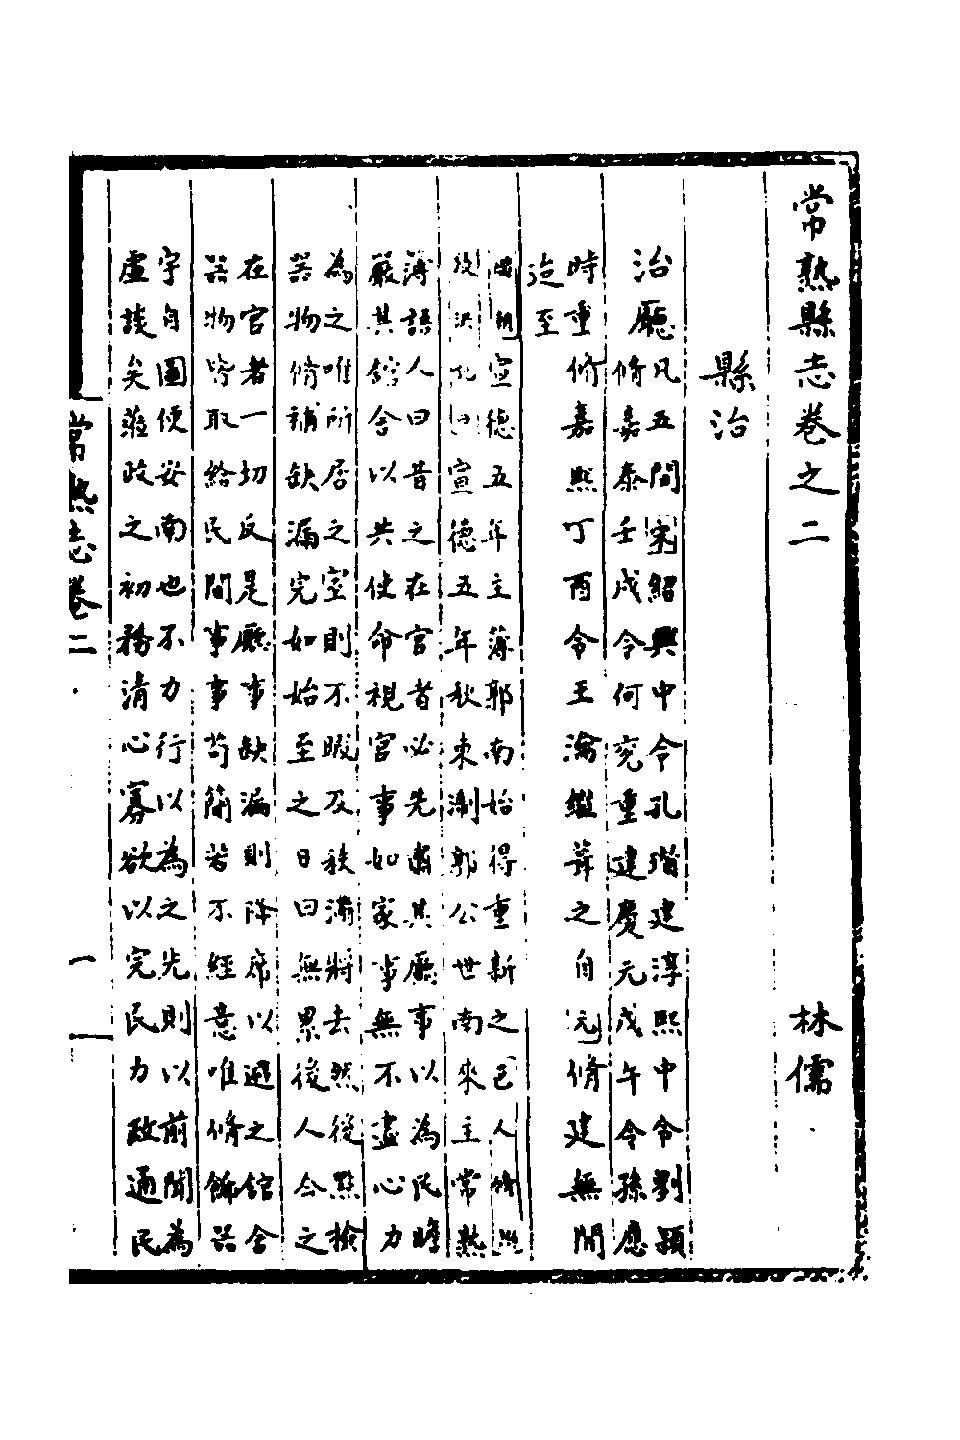 常熟縣志卷之二 林儒
縣治
治廳凡五間宋紹興中令孔瑨建淳熙中令劉穎
脩嘉泰壬戌令何兖重建慶元戊午令孫應
時重脩嘉熙丁酉令王瀹繼葺之自元脩建無聞
迨至
國朝宣德五年主薄郭南始得重新之邑人
宣德五年秋東淛郭公世南來主常熟
薄語人曰昔之在官者必先肅其廳事以為民瞻
嚴其館舍以共使命視官事如家事無不盡心力
為之唯所居之室則不暇及秩滿將去然後點檢
器物脩補缺漏完如始至之日曰無累後人今之
在官者一切反是廳事缺漏則降席以避之館舍
器物皆取給民間事事苟簡若不經意唯脩飾器
宇自圖便安南也不力行以為之先則以前聞為
虛談矣蒞政之初務清心寡欲以完民力政通民
常熟志卷二 一